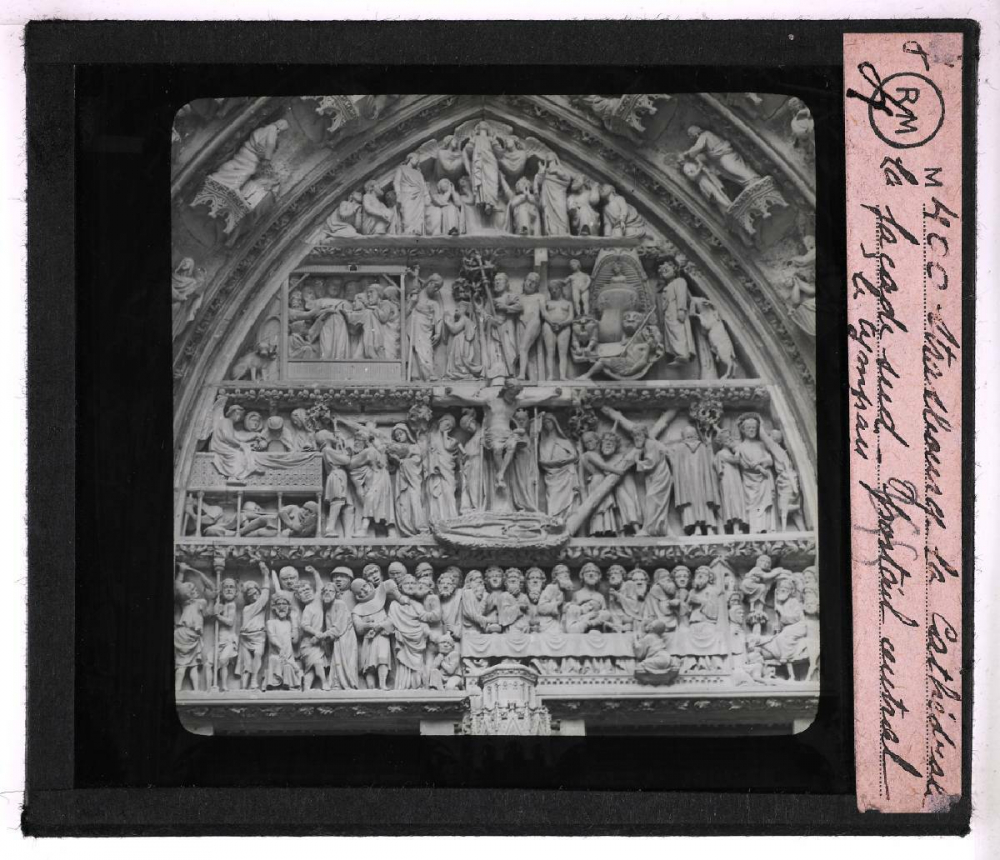 RM
M 4CC Strasbourg la Cathédrale
la façade sud portail central
le tympan